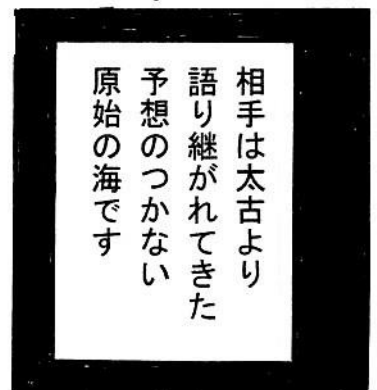 相手は太古より
語り継がれてきた
予想のつかない
原始の海です